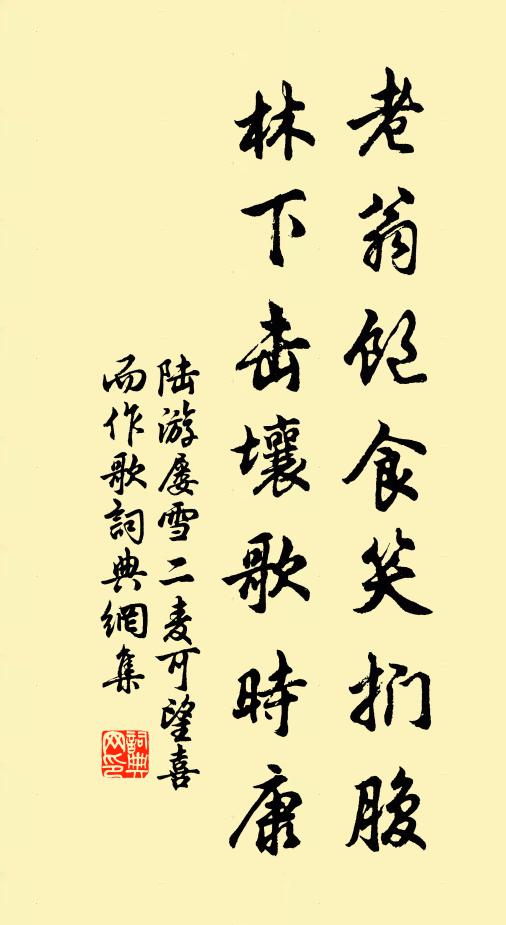 老翁飽食笑捫腹
林下击壤歌時康
陆游屡雪二麦可望喜
而作歌詞典網集
詞典网印